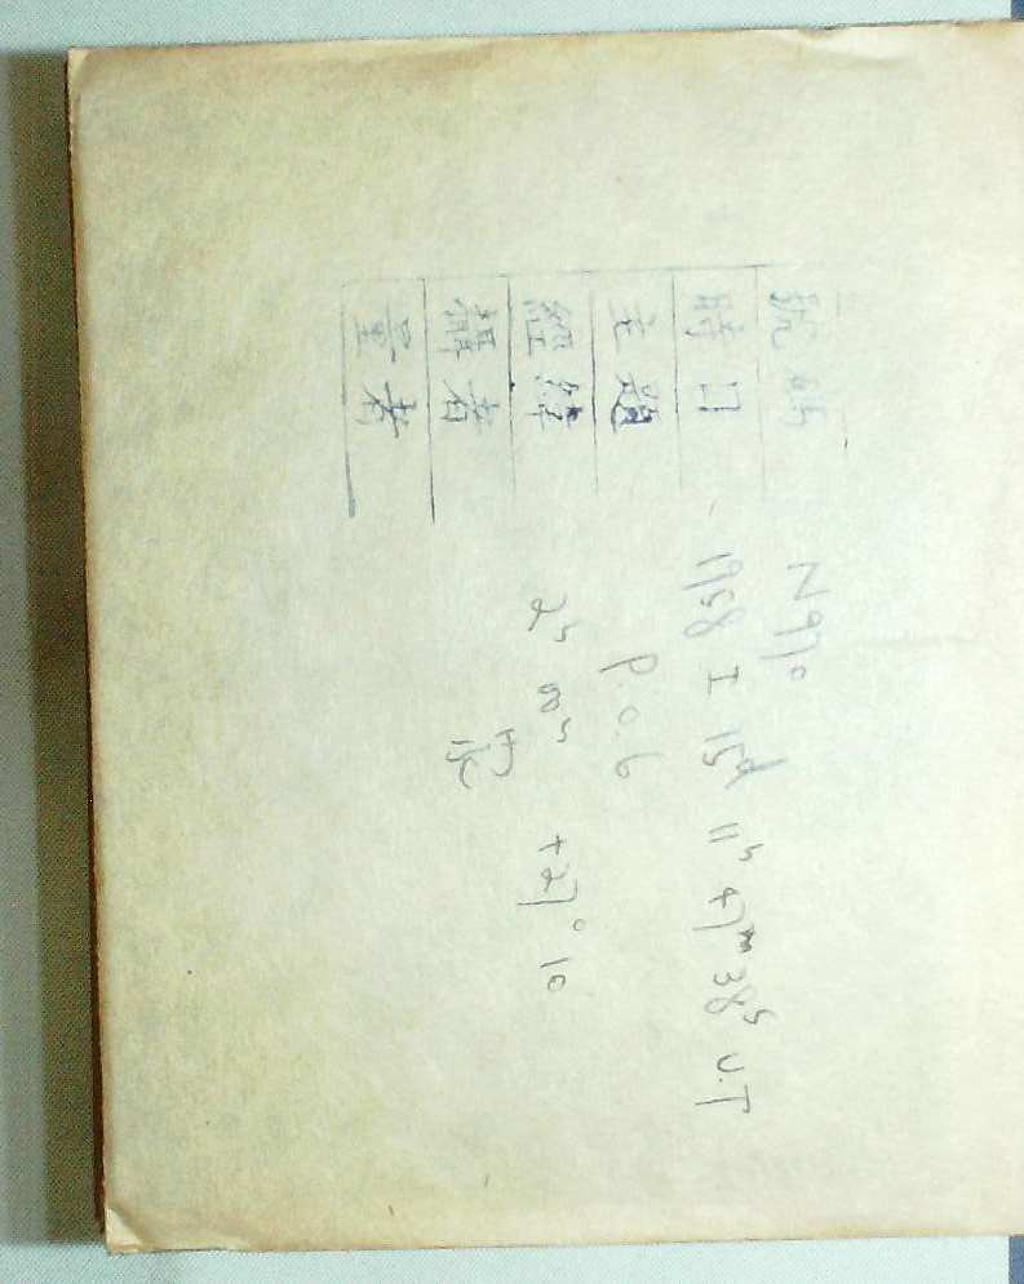 號碼 N970
時日 1958 I 15d 11h 47m 38s U.T
主題 P.O.6
經緯 2h 00m +27° 10
攝者
量者